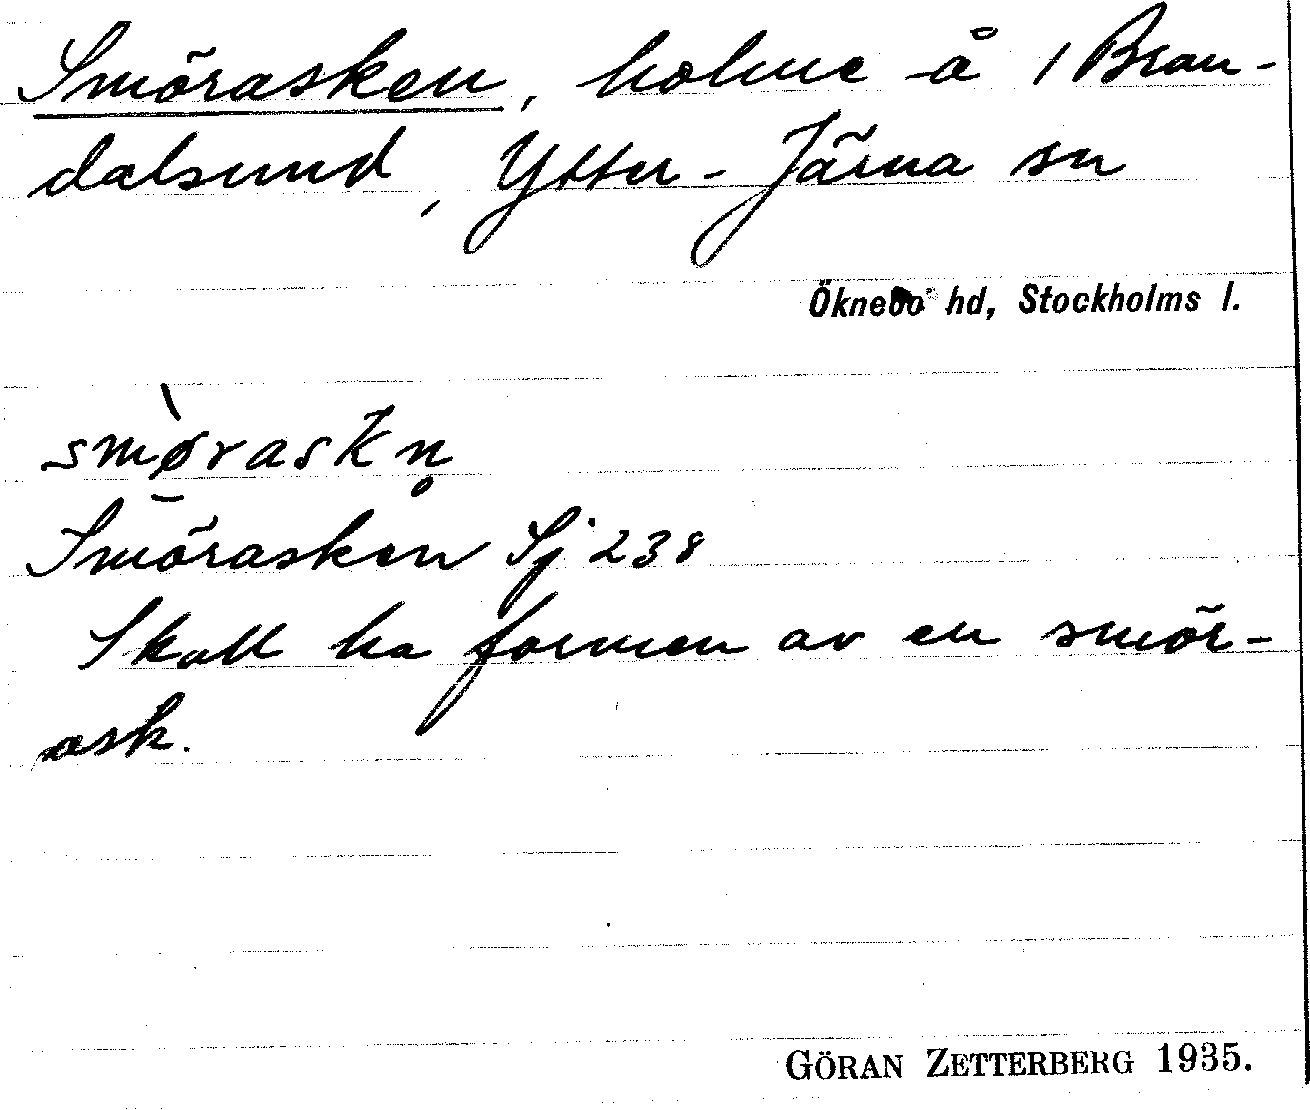 Smörasken, holme å 1 Bran-
dalsund, Ytter-Järna sn
Öknebo hd, Stockholms l.
smø̀̄raskn̥
Smörasken Sj 238
Skall ha formen av en smör-
ask.
GÖRAN ZETTERBERG 1935.